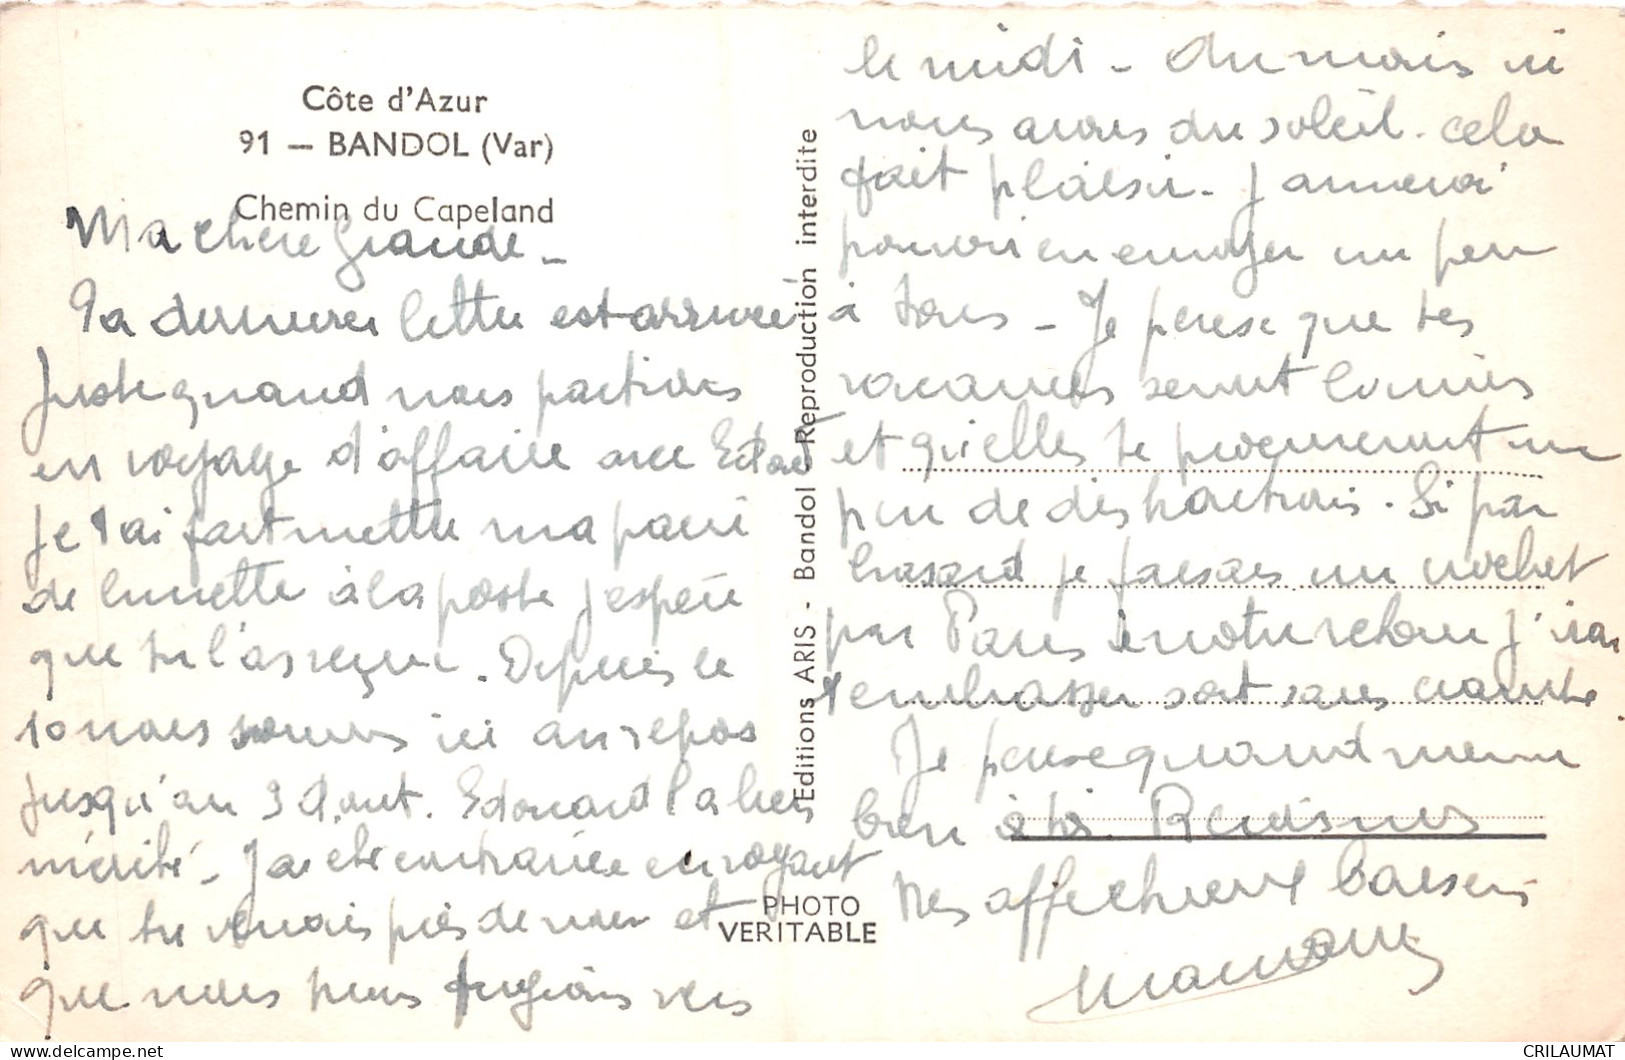 Côte d'Azur
91 — BANDOL (Var)
Chemin du Capeland
Ma chère Grande -
Ta dernière lettre est arrivée
juste quand nous partions
en voyage d'affaire avec
Je t'ai fait mettre ma paire
de lunette à la poste j'espère
que tu l'as reçue. Depuis le
10 nous sommes ici au repos
jusqu'au 3 Aout. Edouard l'a bien
mérité - J'ai été contrariée en voyant
que tu venais près de nous et
que nous nous fugions vers
Editions ARIS - Bandol Reproduction interdite
PHOTO
VERITABLE
le midi - Au mois ici
nous avons du soleil. cela
fait plaisir - J'aimerai
pouvoir en envoyer un peu
à tous - Je pense que tes
vacances seront bonnes
et qu'elles te procureront un
peu de distractions. Si par
hasard je faisais un crochet
par Paris à notre retour j'irai
t'embrasser sois sans crainte
Je pense quand meme
bien à toi.
Mes affectueux baisers